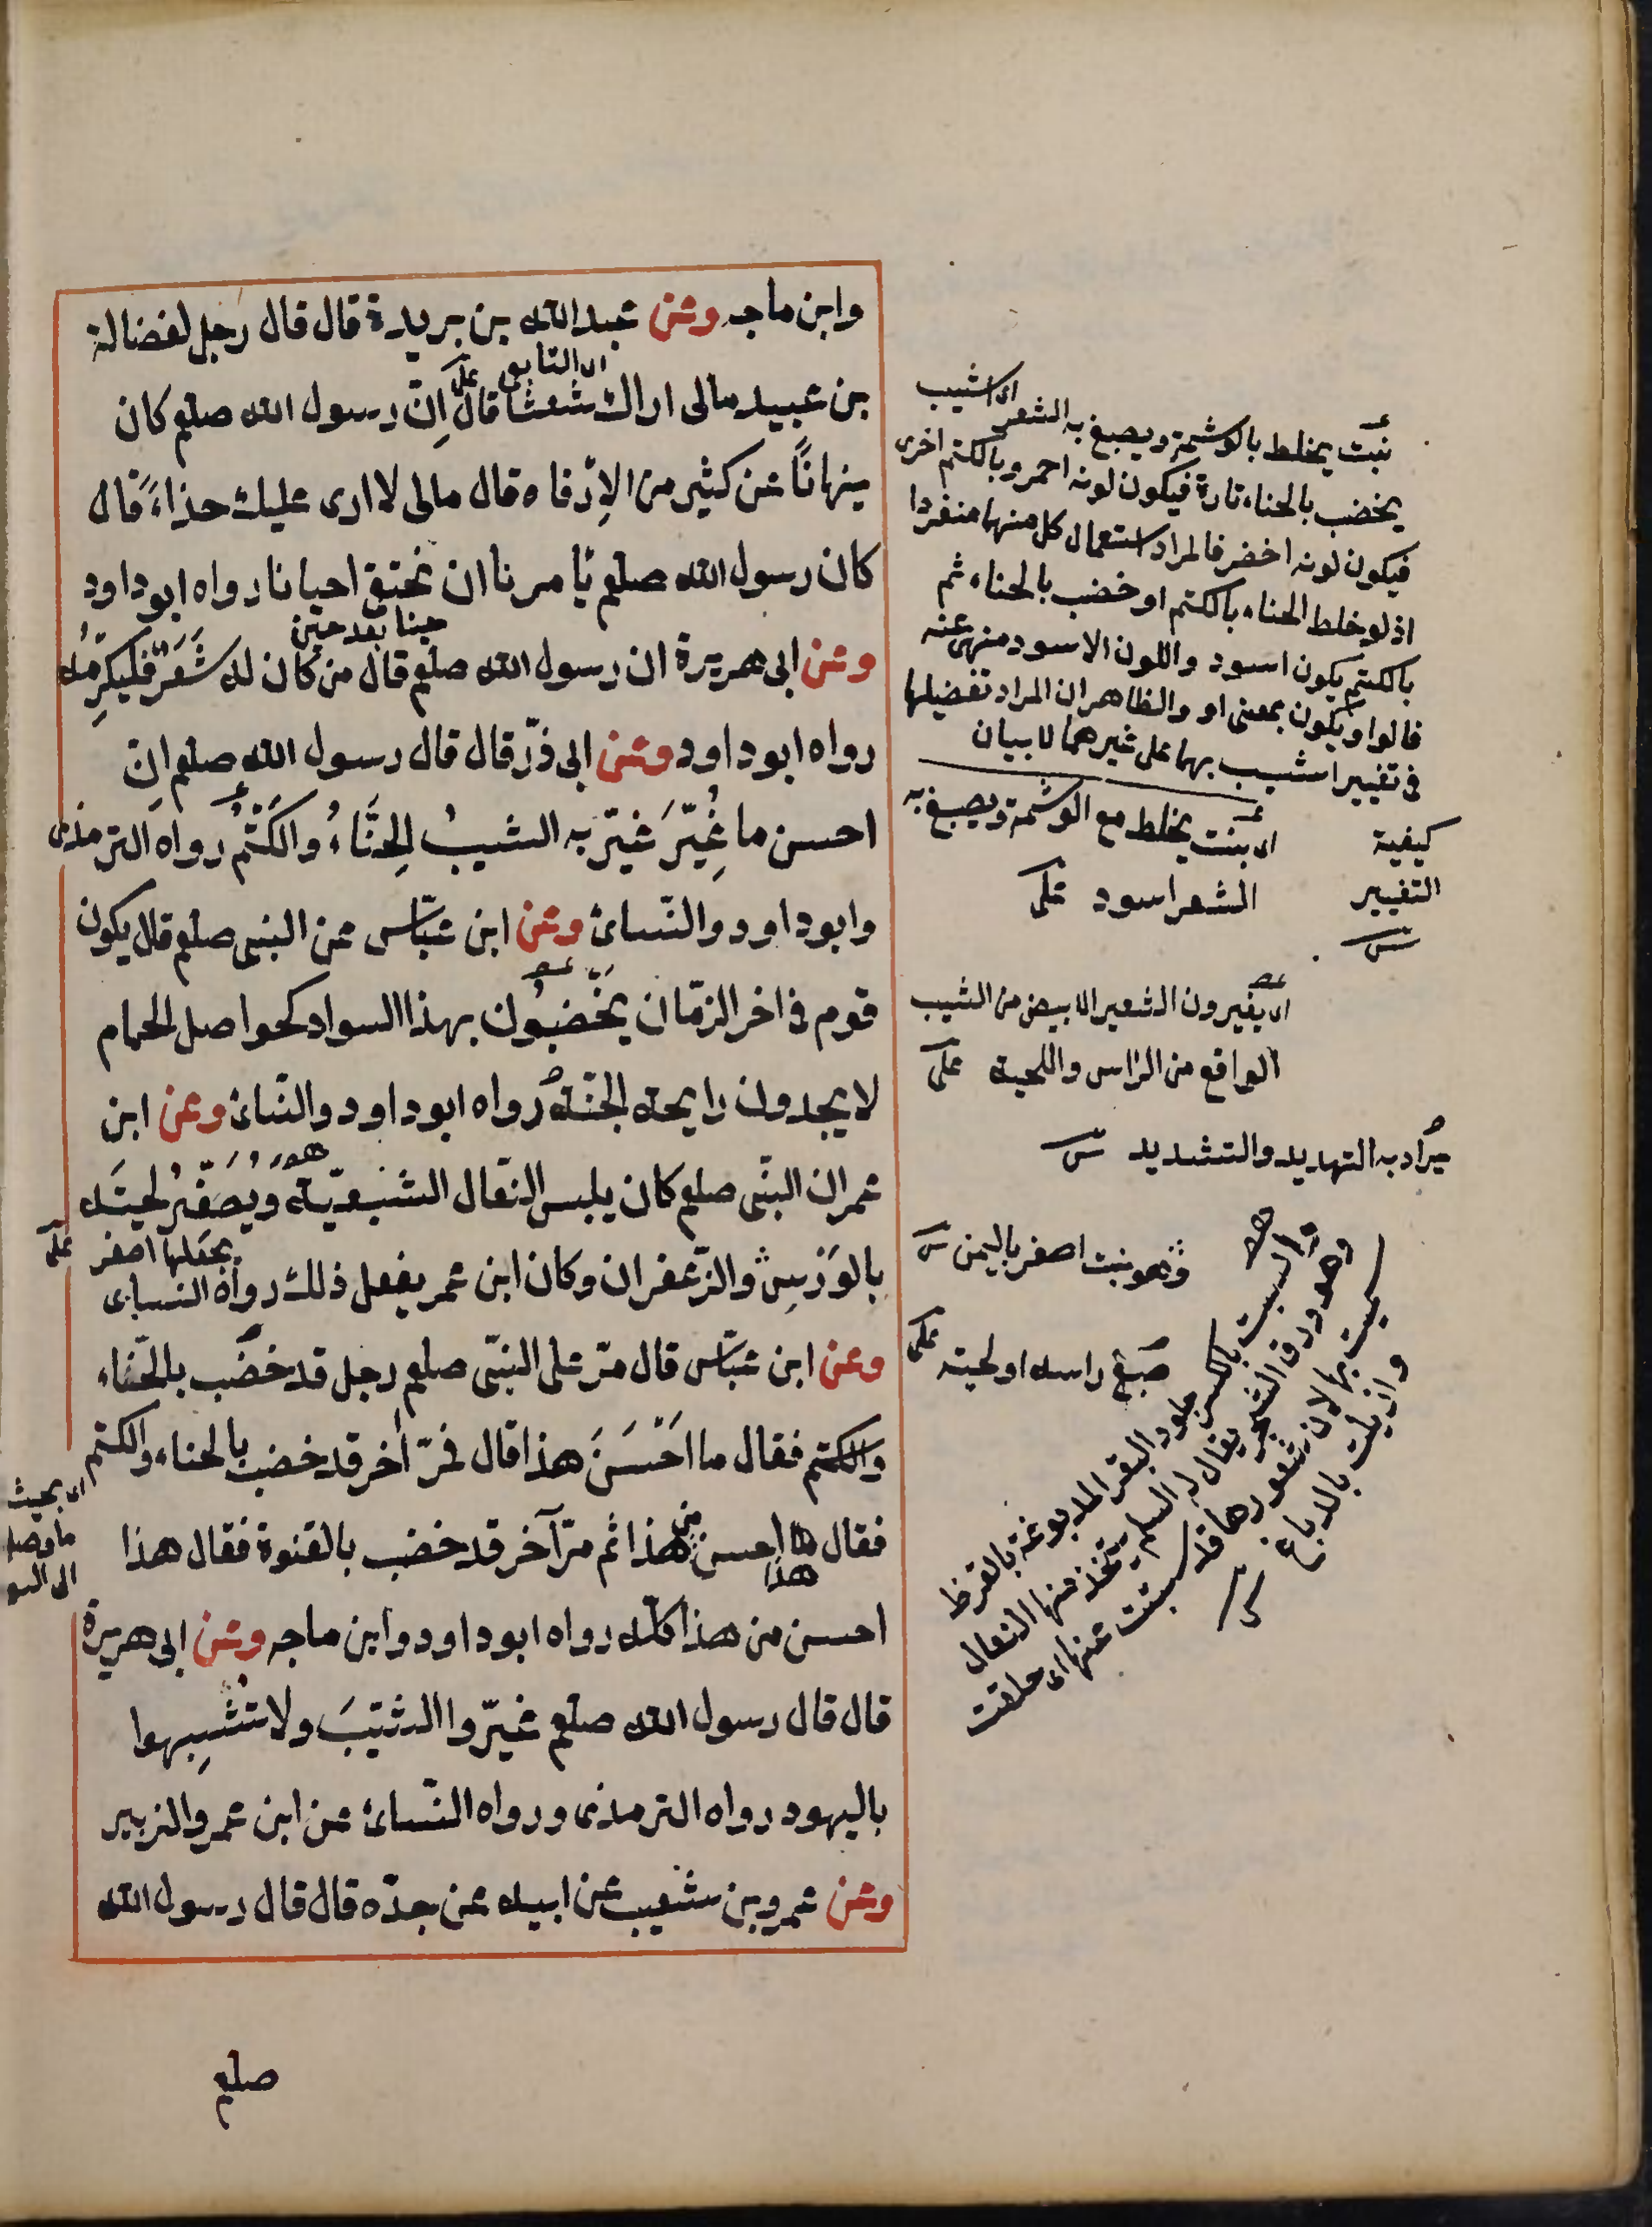 وابن ماجه وعن عبد الله بن بريدة قال قال رجل لفضالة
اى التابعى على
بن عبيد مالى اراك شعثا قال اِنّ رسول الله صلعم كان
ينهانًا عن كثير من الاِرْفاه قال مالى لا ارى عليك حذاءً قال
كان رسول الله صلعم يأمرنا ان نحتفى احيانا رواه ابو داود
حينا بعد حين
وعن ابى هريرة ان رسول الله صلعم قال من كان له شَعَرٌ فليكرِمْه
رواه ابو داود وعن ابى ذرّ قال قال رسول الله صلعم اِنّ
احسن ما غُيِّرَ غيّر به الشيبُ الحِنَّاءُ والكَتَمُ رواه الترمذى
وابو داود والنّسائ وعن ابن عبّاس عن النبى صلعم قال يكون
قوم فى اخر الزمّان يَخْضِبُون بهذا السواد كحواصل الحمام
لا يجدون رايحة الجنّة رواه ابو داود والنّسائ وعن ابن
عمر ان النبّى صلعم كان يلبس النّعال السّبتيّة ويُصَفِّرُ لحيتَه
يجعلها اصفر على
بالوَرْسِ والزّعفران وكان ابن عمر يفعل ذلك رواه النسائ
وعن ابن عبّاس قال مرّ على النبّى صلعم رجل قد خضَب بالحنّاء
والكتم فقال ما اَحْسَنَ هذا قال فمرّ أخر قد خضب بالحناء والكتم
فقال هذا احسن من هذا ثم مرّ آخر قد خضب بالصفرة فقال هذا
احسن من هذا كلّه رواه ابو داود وابن ماجه وعن ابى هريرة
قال قال رسول الله صلعم غيّروا الشيبَ ولا تشبهوا
باليهود رواه الترمذى ورواه النّسائ عن ابن عمر والزبير
وعن عمرو بن شعيب عن ابيه عن جدّه قال قال رسول الله
صلعم
اى الشيب
نبت يخلط بالوشمة ويصبغ به الشعر
يخضب بالحناء تارة فيكون لونه احمر وبالكتم اخرى
فيكون لونه اخضر فالمراد استعمال كل منهما منفردا
اذ لو خلط الحناء بالكتم او خضب بالحناء ثم
بالكتم يكون اسود واللون الاسود منهى عنه
فالواو يكون بمعنى او والظاهر ان المراد تفضيلهما
فى تغيير الشيب بهما على غيرهما لا بيان
كيفية
التغيير
اى نبت يخلط مع الوشمة ويصبغ به
الشعر اسود على
اى يغيرون الشعر الابيض من الشيب
الواقع من الرّاس واللحية على
يراد به التهديد والتشديد
وهو نبت اصفر باليمن
صبغ راسه او لحيته على
والسبت بالكسر جلود البقر المدبوغة بالقرظ
وهو ورق الشجر يقال له السلم يتخذ منها النعال
سميت بها لان شعورها قد سبتت عنها اى حلقت
وازيلت بالدباغ
اى بحيث
ما وصل